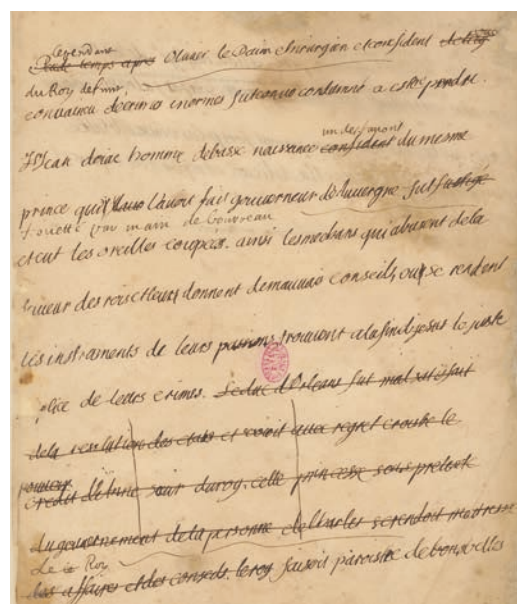 cependant
Peu de temps apres Olivier le Daim chirurgien et confident
du Roy defunt,
convaincu de crimes enormes fut condamné a estre pendu.
un des
Jean doiac homme de basse naissance confident du mesme
prince qui l'avoit fait gouverneur de l'auvergne fut fustigé
fouetté par main de bourreau
et eut les oreilles coupées. ainsi les meschans qui abusent de la
faveur des rois et leurs donnent de mauvais conseils, ou se rendent
les instruments de leurs passions trouvent a la fin le juste
de leurs crimes. Le duc d'Orleans fut mal satisfait
de la resolution des etats et voioit avec regret croistre le
pouvoir
credit de soeur du roy. cette princesse sous pretexte
du gouvernement de la personne de Charles se rendoit maitresse
Le Roy
des affaires et des conseils. le roy faisoit paroistre de bonnes